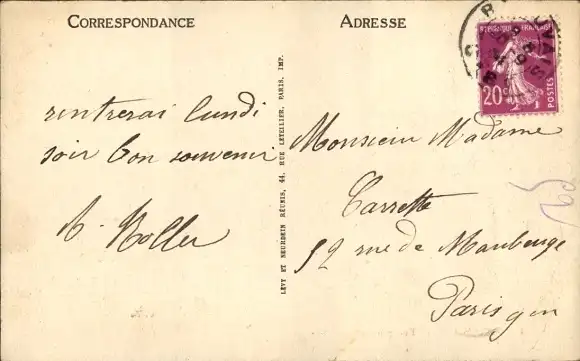 CORRESPONDANCE
rentrerai lundi
soir bon souvenir
Koller
LÉVY ET NEURDEIN RÉUNIS, 44, RUE LETELLIER, PARIS. IMP.
ADRESSE
REPUBLIQUE FRANÇAISE
20c
POSTES
Monsieur Madame
Carrette
52 rue de Maubeuge
Paris